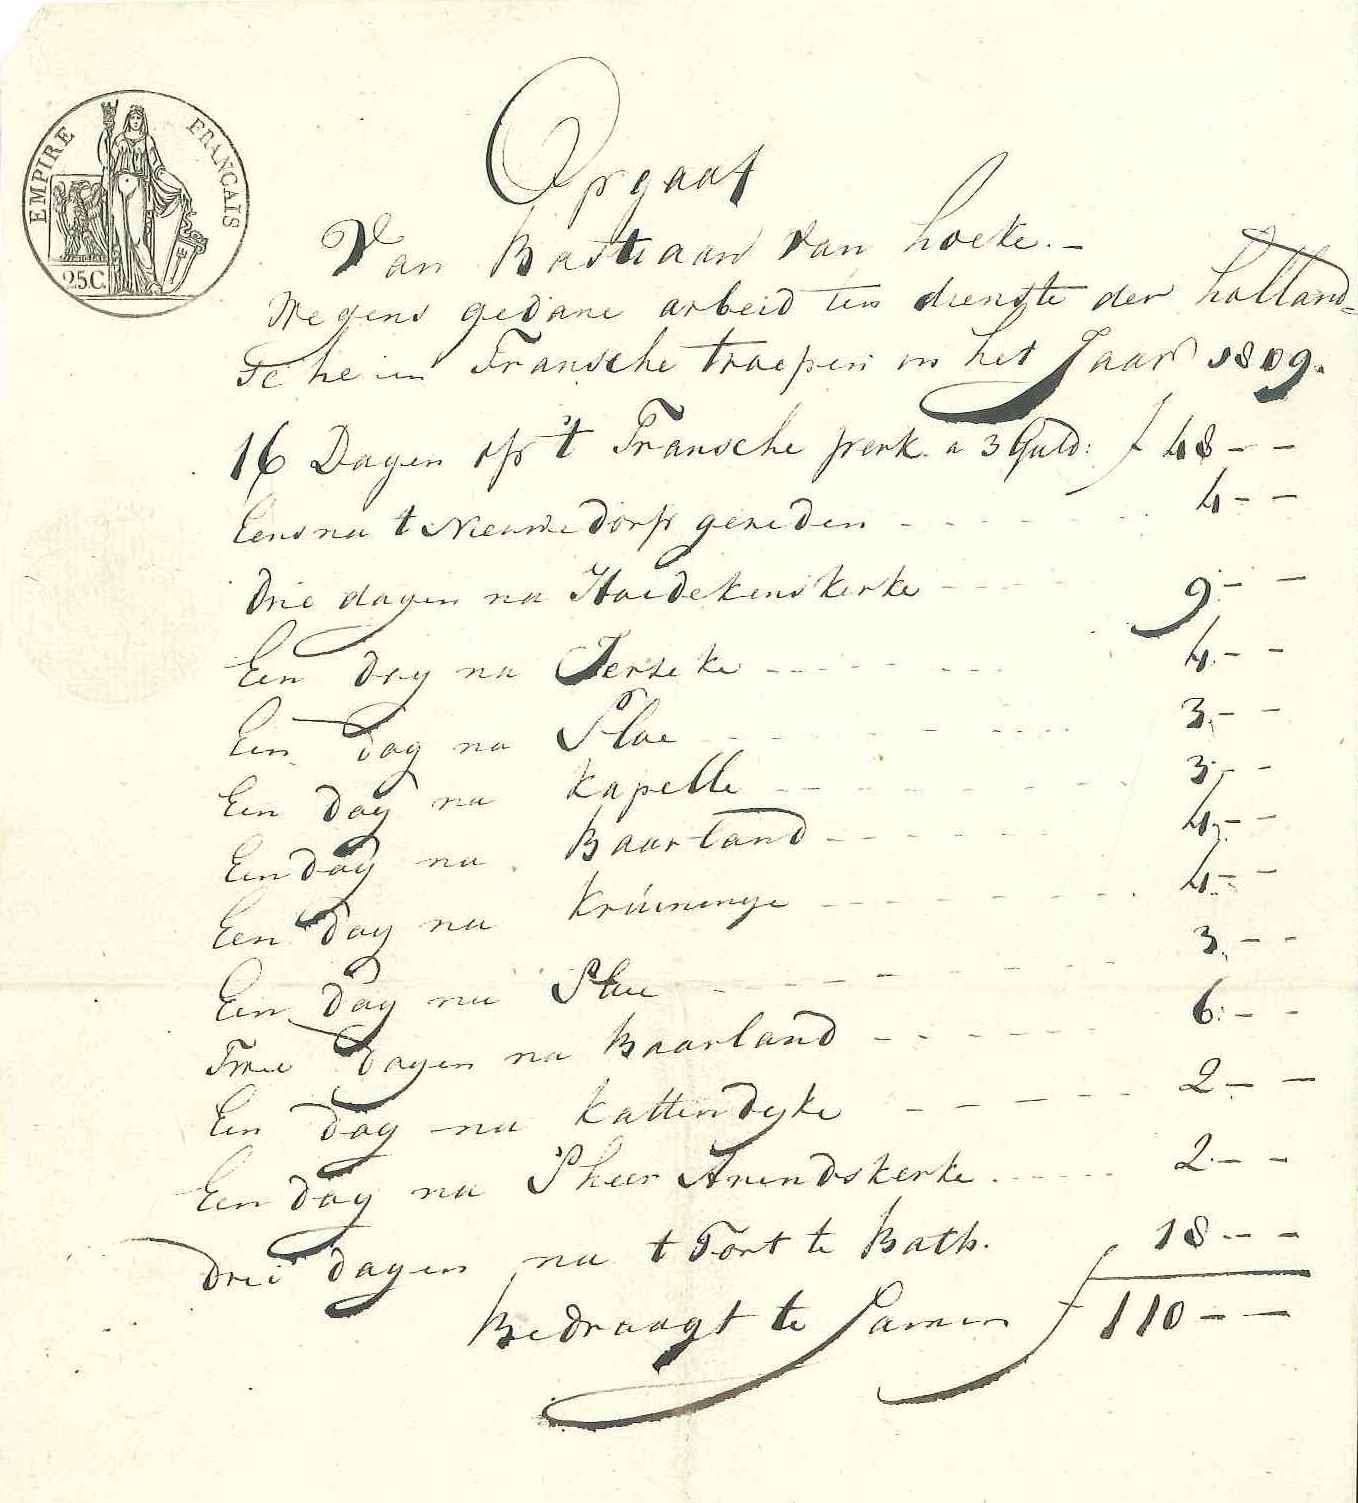 EMPIRE FRANCAIS
25C.
Opgaaf
Van Bastiaan van hoeke.-
Wegens gedane arbeid ten dienste der holland=
sche en Fransche troepen in het Jaar 1809.
16 Dagen op 't Fransche perk. a 3 Guld: f 48 - -
Eens na t Nieuwedorp gereden - - - - - - 4 - -
drie dagen na Hoedekenskerke - - - - 9 - -
Een dag na Ierseke - - - - - - - 4 - -
Een dag na Sloe - - - - - - - - 3 - -
Een dag na kapelle - - - - - - - 3 - -
Een dag na Baarland - - - - - - 4 - -
Een dag na kruininge - - - - - - - 4 - -
Een dag na Sloe - - - - - - - - 3 - -
Twee dagen na Baarland - - - - - - 6 - -
Een dag na kattendyke - - - - - 2 - -
Een dag na Sheer Arendskerke - - - - 2 - -
drie dagen na t Fort te Bath. 18 - -
Bedraagt te Samen f 110 - -